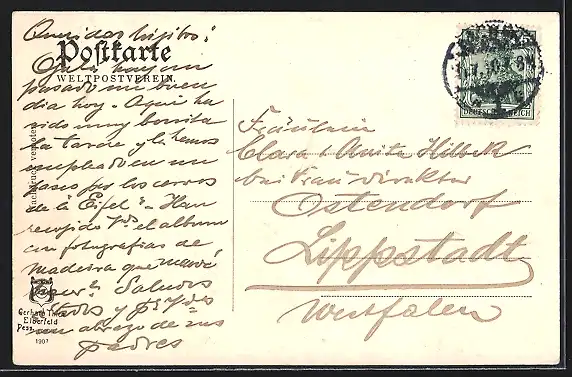 Queridas hijitas!
Postkarte
WELTPOSTVEREIN.
Ojalá hayan
pasado un buen
dia hoy. Aqui ha
sido muy bonita
la tarde y la hemos
empleado en un
paseo por los cerros
de la "Eifel". Han
recojido Vds el album
con fotografias de
madeira que mandé
ayer? Saludos
á todos y p. Vdes
un abrazo de sus
padres
Nachdruck verboten
Gerhard
Elberfeld
1907
DEUTSCHES REICH
Fräulein
Clara u. Anita Hilbeck
bei Frau Direktor
Ostendorf
Lippstadt
Westfalen